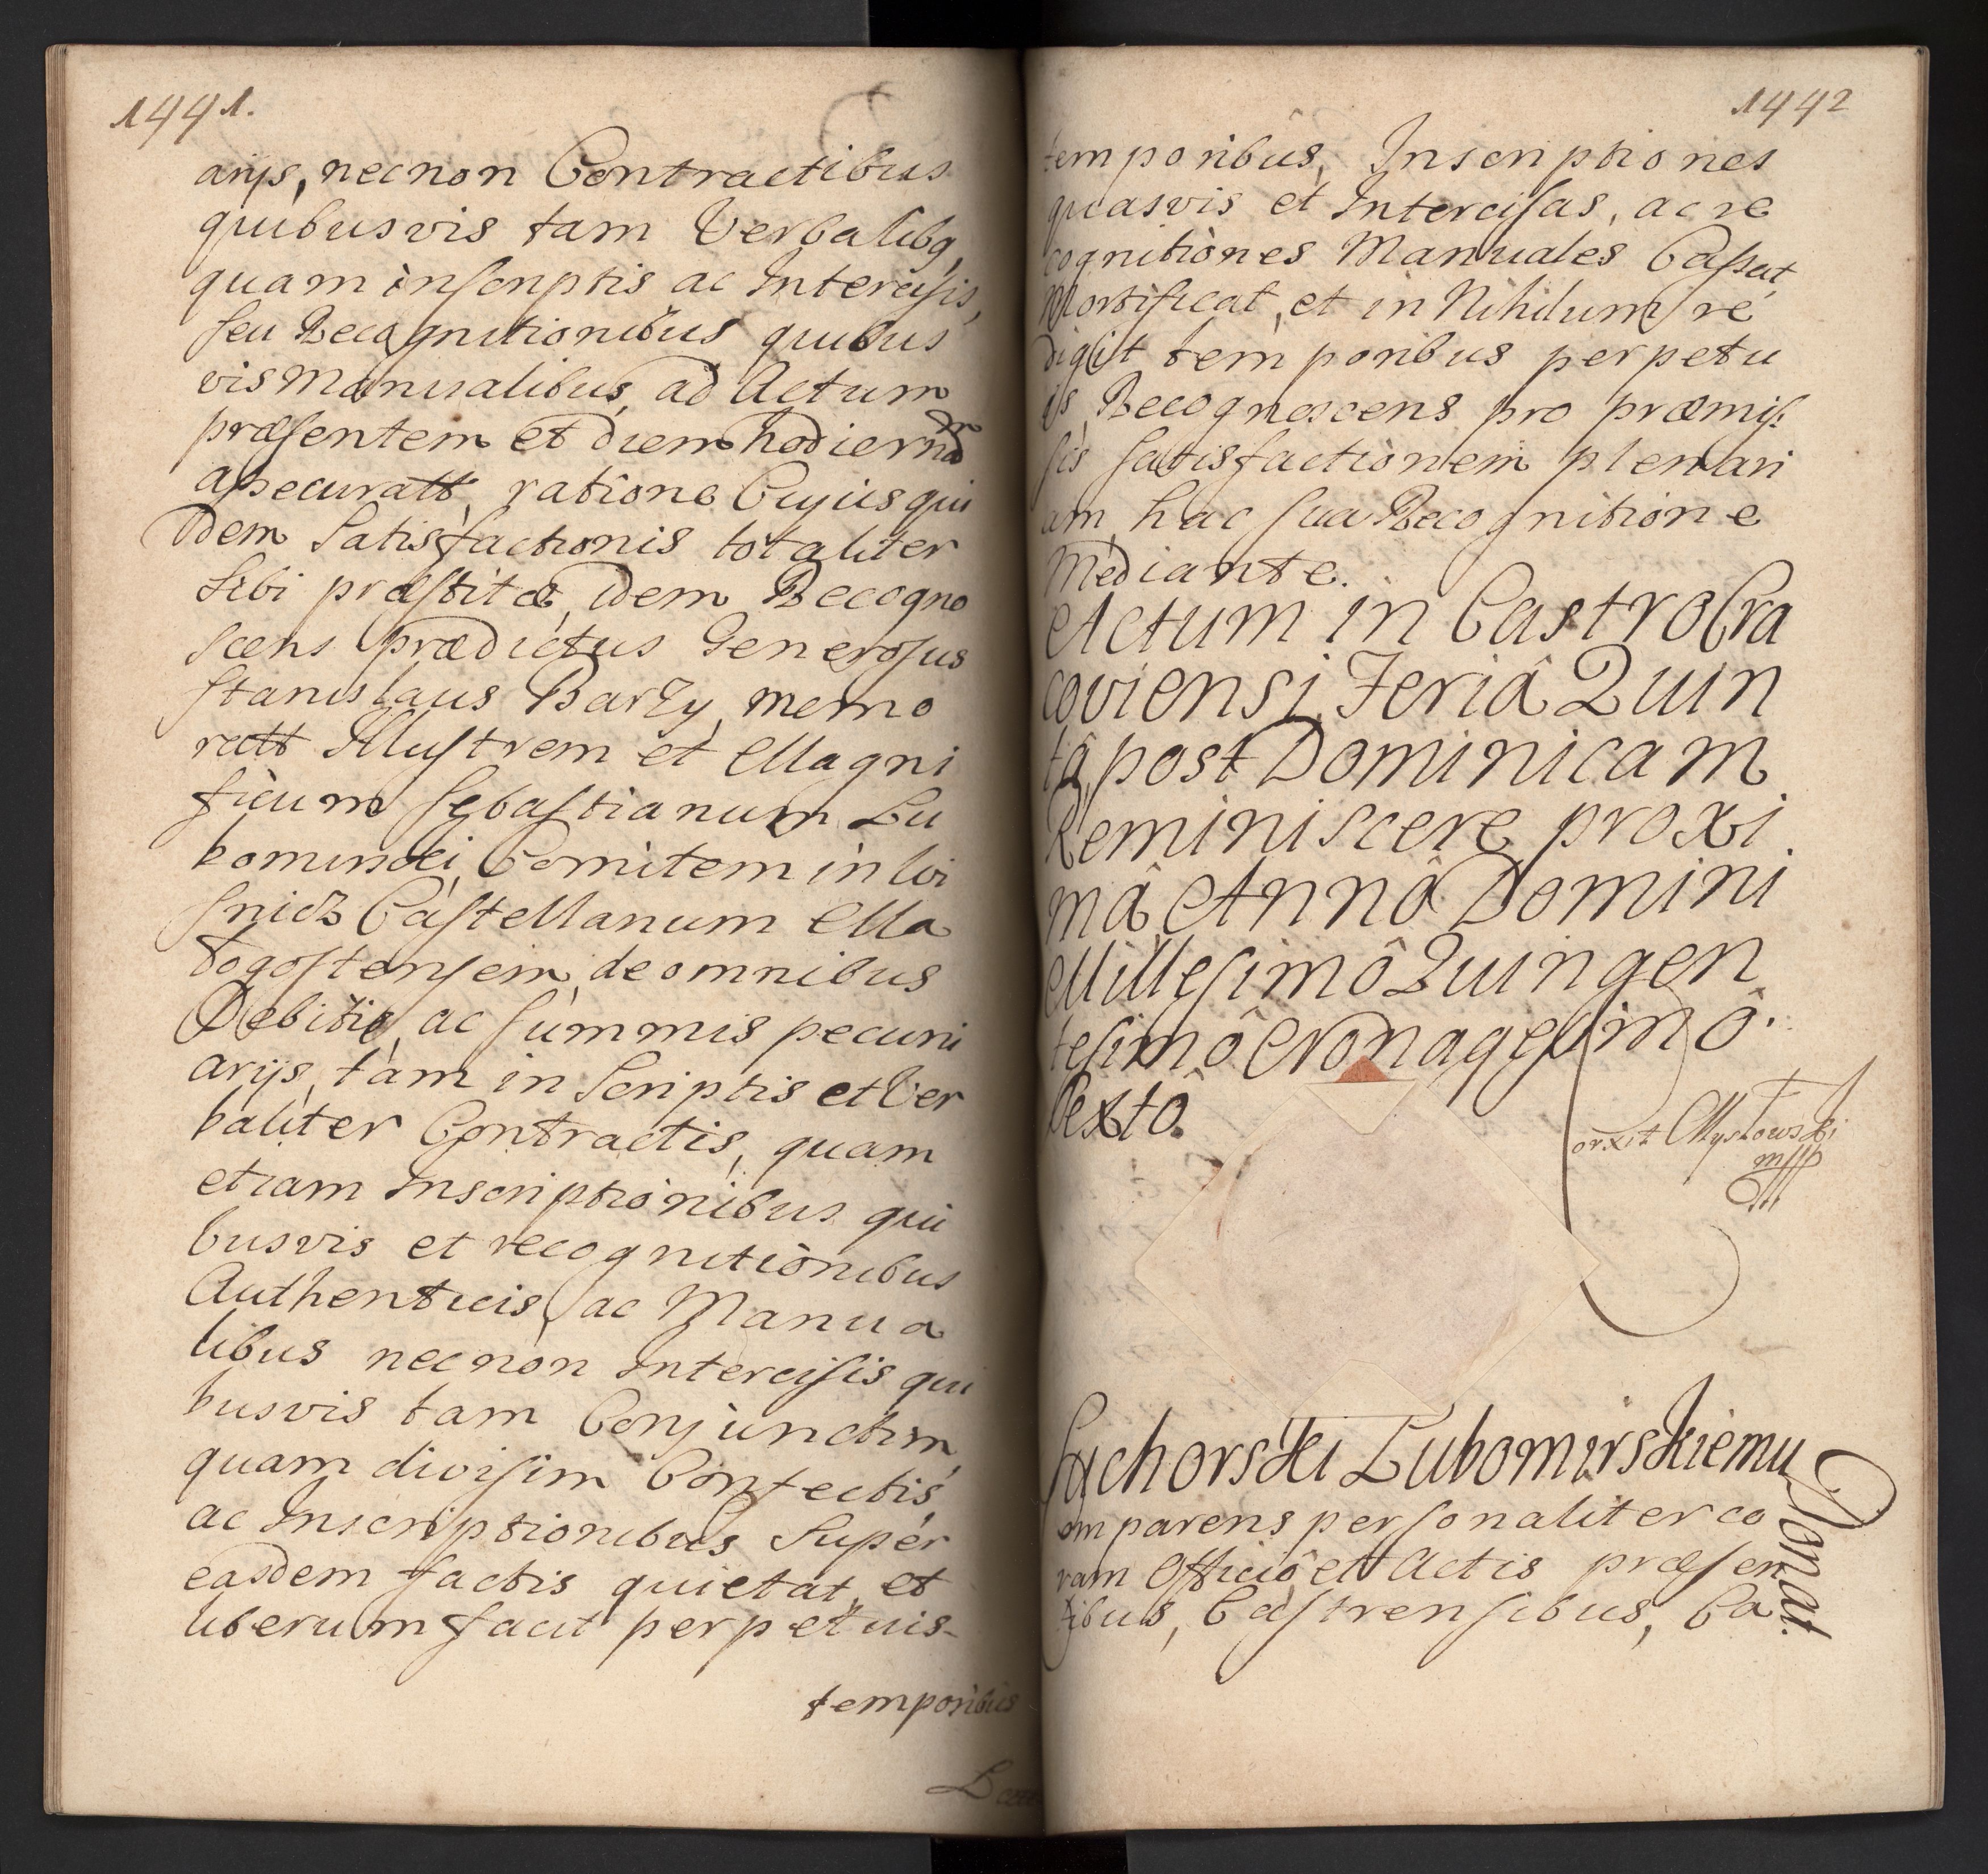 1441.
arijs, necnon Contractibus
quibusvis tam Verbalibq,
quam inscriptis ac Intercisis,
seu Recognitionibus quibus
vis Manualibus, ad Actum
præsentem et diem hodiernam
assecuratt, ratione Cujusqui
dem Satisfactionis totaliter
sibi præstitæ, idem Recogno
scens prædictus Generosus
Stanislaus Barzy, memo
ratt Illustrem et Magni
ficum Sebastianum Lu
bomirski, Comitem in Wi
snicz Castellanum Ma
łogostensem, de omnibus
Debitis, ac summis pecuni
arijs, tam in Scriptis et Ver
baliter Contractis, quam
etiam Inscriptionibus qui
busvis et recognitionibus
Authenticis, ac Manua
libus necnon Intercisis qui
busvis tam Conjunctim,
quam divisim Confectis,
ac Inscriptionibus Super
easdem factis quietat, et
liberum facit perpetuis
temporibus
1442
temporibus, Inscriptiones
quasvis et Intercisas, ac re
cognitiones Manuales Cassat,
Mortificat, et in Nihilum re
digit temporibus perpetu
is, Recognoscens pro præmis
sis satisfactionem plenari
am, hac sua Recognitione
Mediante.
Actum in Castro Cra
coviensi, Feriâ Quin
tâ, post Dominicam
Reminiscere proxi
mâ, Annô Domini
Millesimô Quingen
tesimô Nonagesimô
Sextô.
orxit Mysłowski
mpp
Suchorski Lubomirskiemu
Donat.
omparens personaliter co
ram Officiô et Actis præsen
tibus, Castrensibus, Ca